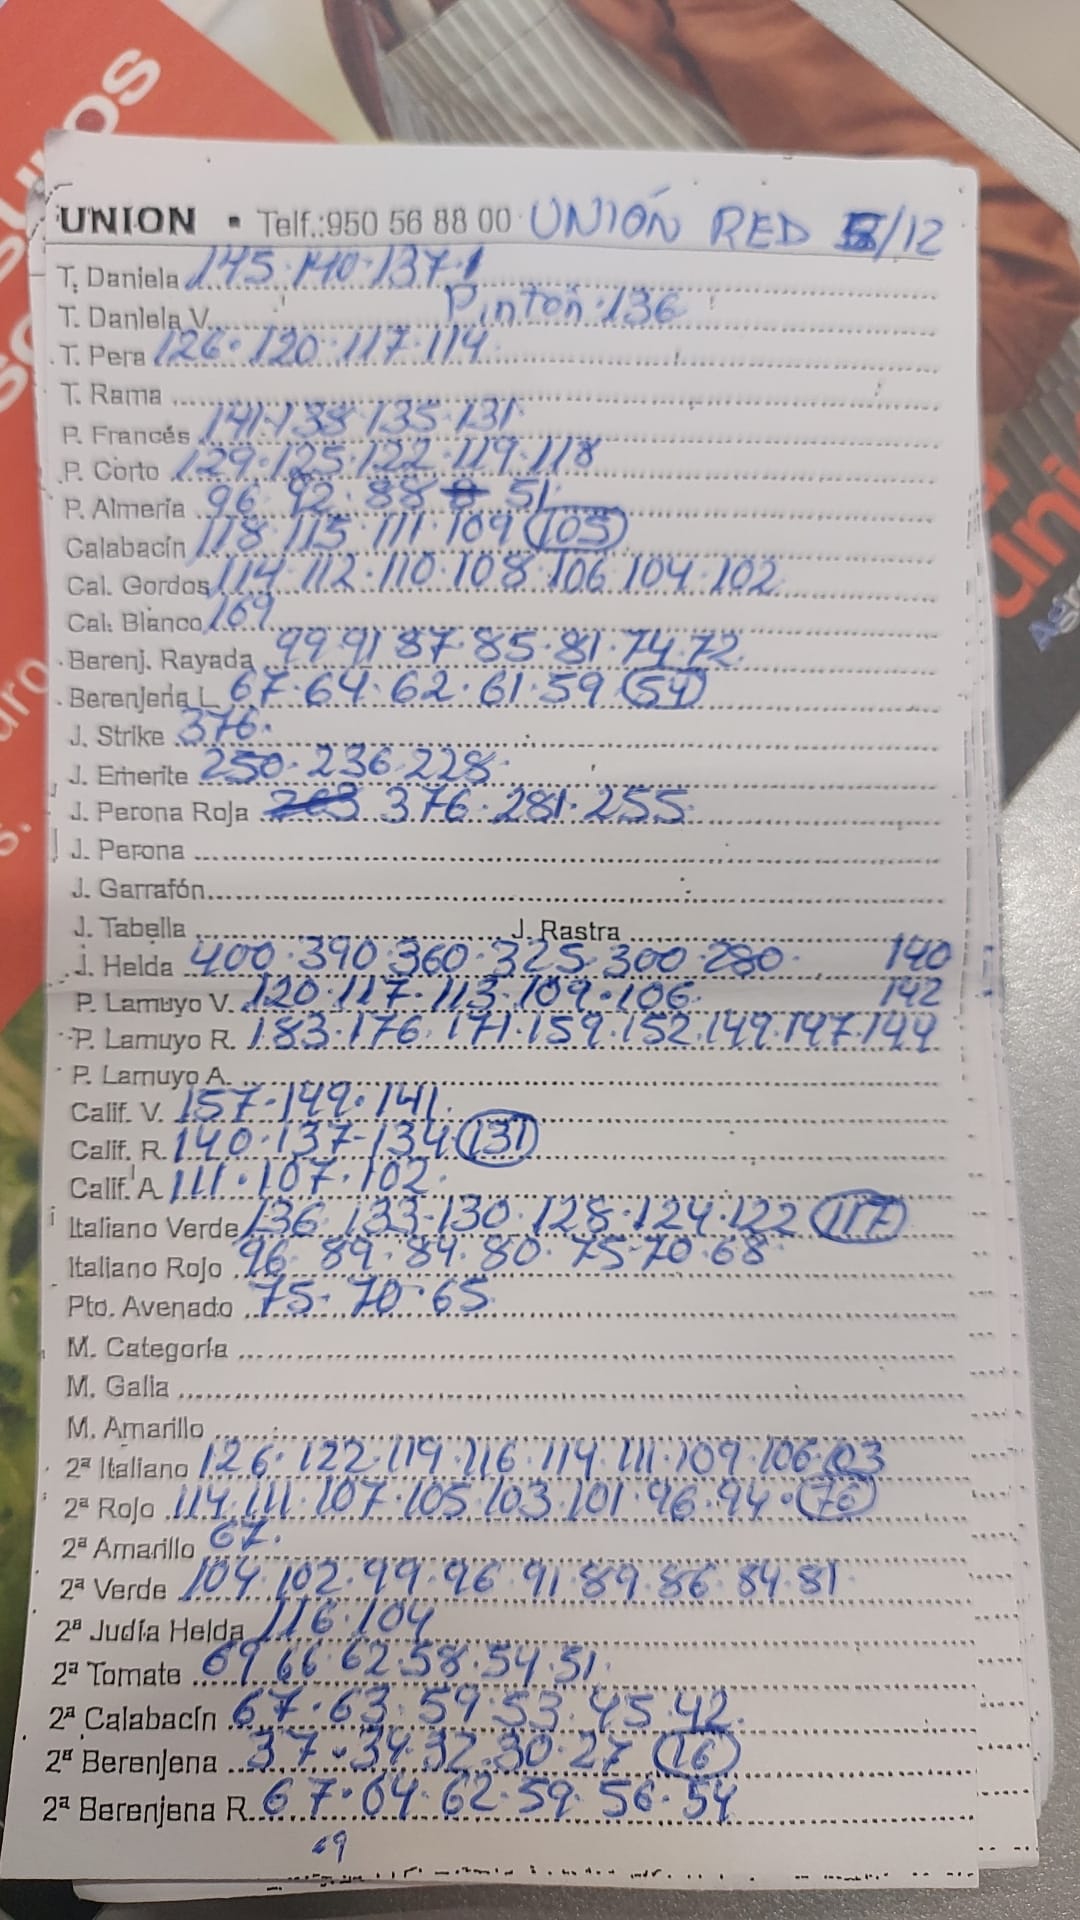 UNION • Telf.:950 56 88 00 UNIÓN RED 5/12
T. Daniela 145·140·137·
T. Daniela V. Pinton·136
T. Pera 126·120·117·114
T. Rama
P. Francés 141·138·135·131
P. Corto 129·125·122·119·118
P. Almería 96·92·88 51
Calabacín 118·115·111·109 105
Cal. Gordos 114·112·110·108·106 104·102
Cal. Blanco 169
Berenj. Rayada 99 91 87·85·81·74·72
Berenjena L 67·64·62·61·59 54
J. Strike 376·
J. Emerite 250·236·228
J. Perona Roja 376·281·255
J. Perona
J. Garrafón
J. Tabella J. Rastra
J. Helda 400·390·360·325·300·280· 140
P. Lamuyo V. 120·117·113·109·106 142
P. Lamuyo R. 183·176·171·159·152·149·147·144
P. Lamuyo A.
Calif. V. 157·149·141
Calif. R. 140·137-134 131
Calif. A 111·107·102·
Italiano Verde 136·133-130·128·124·122 117
Italiano Rojo 96·89·84·80·75·70·68
Pto. Avenado 75·70·65
M. Categoría
M. Galia
M. Amarillo
2ª Italiano 126·122·119·116·114·111·109·106·103
2ª Rojo 114·111·107·105·103·101·96·94· 76
2ª Amarillo 67·
2ª Verde 104·102·99·96·91·89·86·84·81
2ª Judía Helda 116·104
2ª Tomate 69 66·62·58·54·51
2ª Calabacín 67·63·59·53·45·42
2ª Berenjena 37·34·32·30·27 16
2ª Berenjena R. 67·64·62·59·56·54